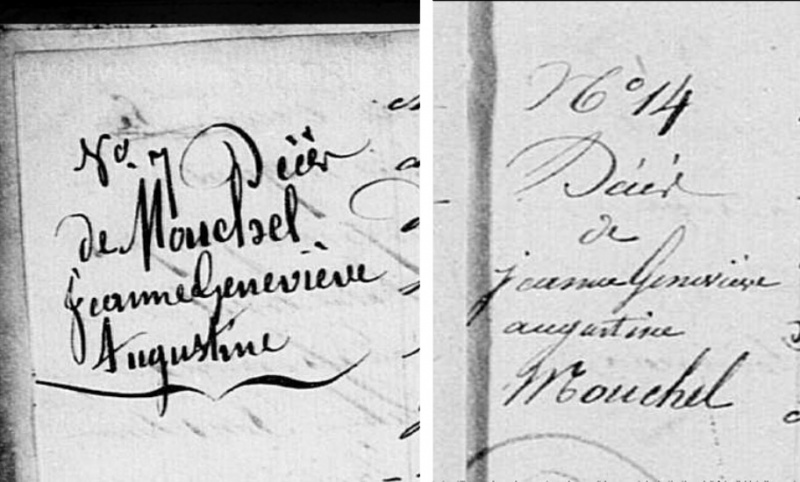 No. 7 Décès
de Mouchel
jeanne Geneviève
Augustine
No 14
Décès
de
jeanne Geneviève
augustine
Mouchel